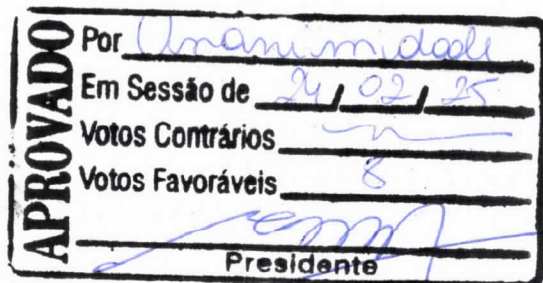 APROVADO
Por Unanimidade
Em Sessão de 24/02/25
Votos Contrários
Votos Favoráveis 8
Presidente